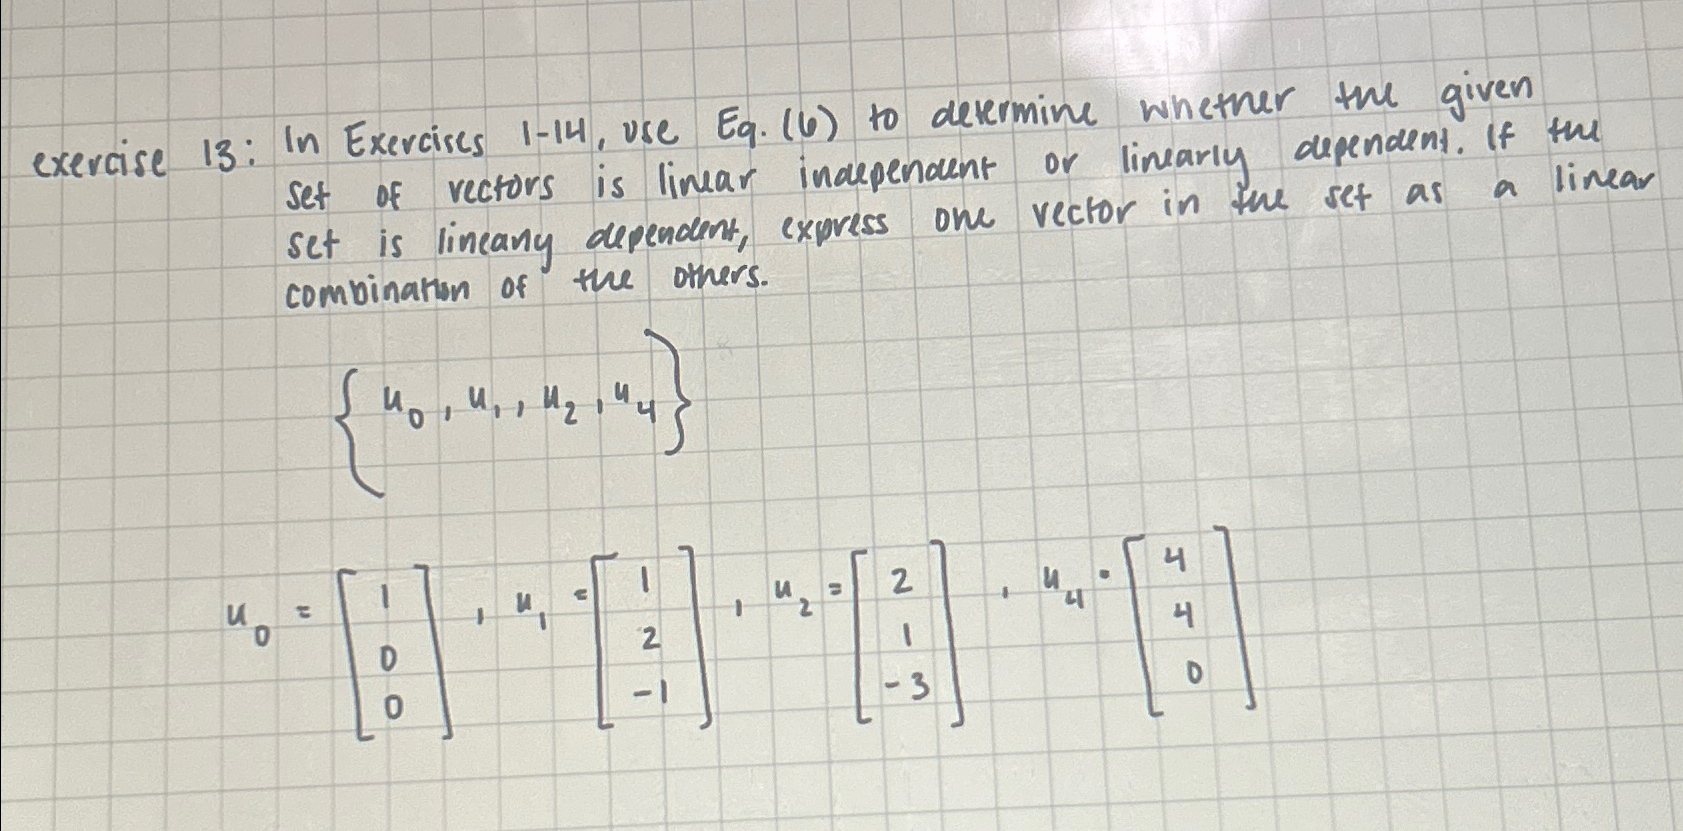 exercise 13: In Exercises 1-14, use Eq. (6) to determine whether the given
set of vectors is linear independent or linearly dependent. If the
set is linearly dependent, express one vector in the set as a linear
combination of the others.
{ u₀, u₁, u₂, u₄ }
u₀ = [1 0 0], u₁ = [1 2 -1], u₂ = [2 1 -3], u₄ = [4 4 0]